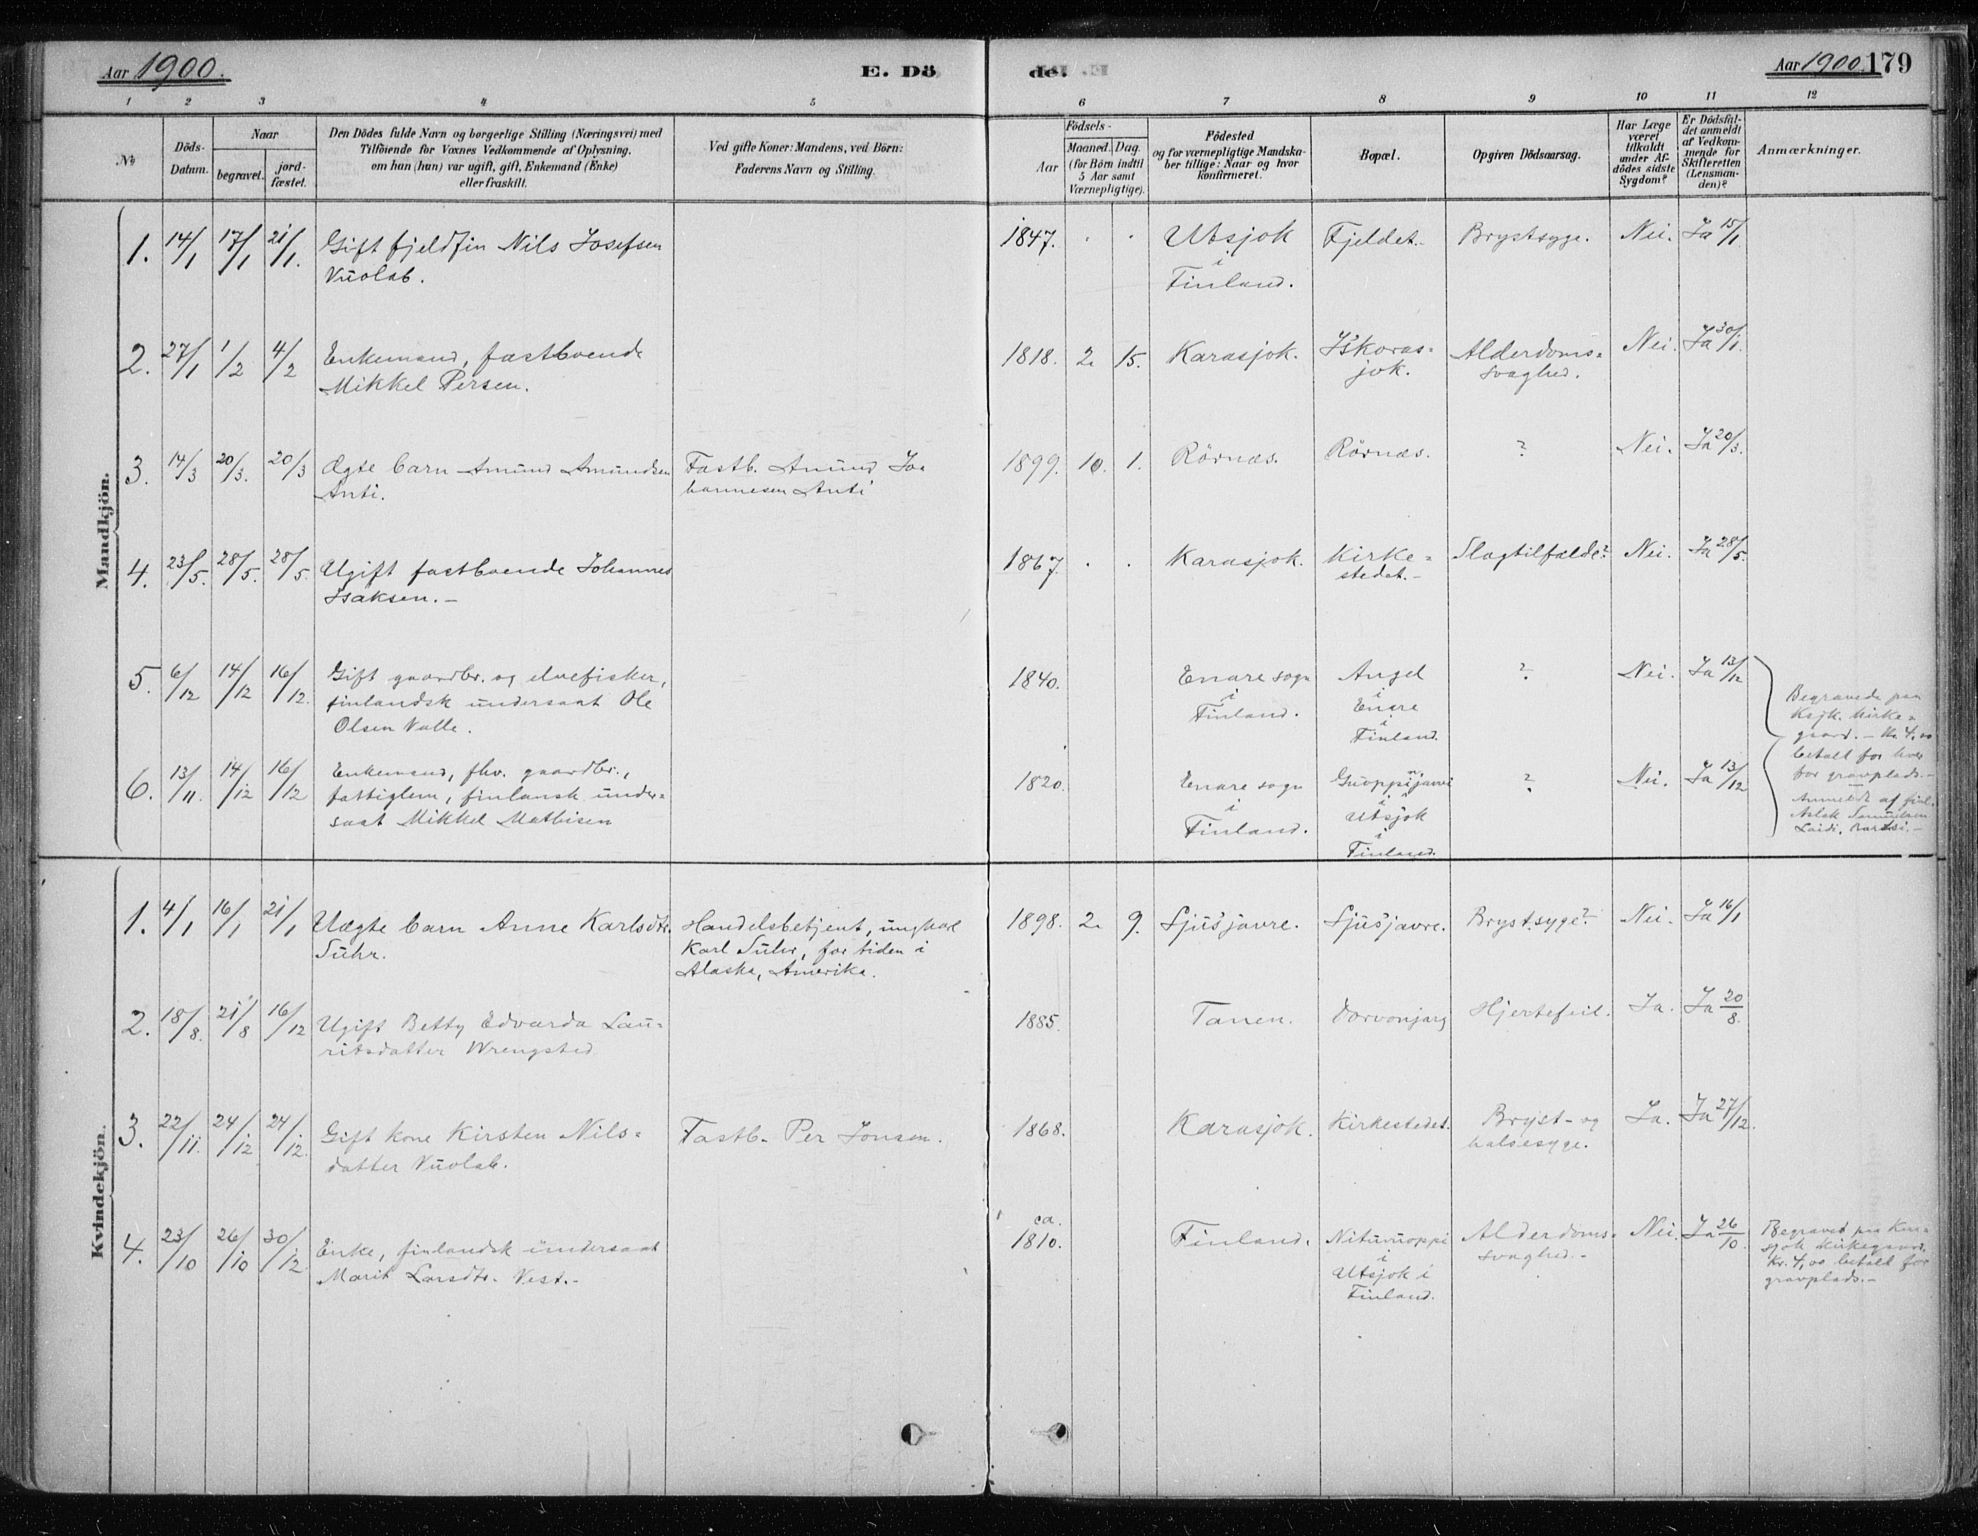 Aar 1900.
E. Dö
de.
Aar 1900. 179
1 2 3 4 5 6 7 8 9 10 11 12
No
Döds-
Datum.
Naar
begravet.
jord-
fæstet.
Den Dödes fulde Navn og borgerlige Stilling (Næringsvei) med
Tilföiende for Voxnes Vedkommende af Oplysning,
om han (hun) var ugift, gift, Enkemand (Enke)
eller fraskilt.
Ved gifte Koner: Mandens, ved Börn:
Faderens Navn og Stilling.
Födsels-
Aar
Maaned. Dag.
(for Börn indtil
5 Aar samt
Værnepligtige).
Födested
og for værnepligtige Mandska-
ber tillige: Naar og hvor
konfirmeret.
Bopæl.
Opgiven Dödsaarsag.
Har Læge
været
tilkaldt
under Af-
dödes sidste
Sygdom?
Er Dödsfal-
det anmeldt
af Vedkom-
mende for
Skifteretten
(Lensman-
den)?
Anmærkninger.
Mandkjön.
1. 14/1 17/1 21/1. Gift fjeldfin Nils Josefsen
Vuolab.
1847. . . Utsjok
i
Finland.
Fjeldet. Brystsyge. Nei. Ja 15/1.
2. 27/1 1/2 4/2 Enkemand, fastboende
Mikkel Persen.
1818. 2. 15. Karasjok. Iskoras=
jok.
Alderdoms=
svaghed.
Nei. Ja 30/1.
3. 14/3 20/3. 20/3 Ægte barn Amund Amundsen
Anti.
Fastb. Amund Jo=
hannesen Anti
1899. 10. 1. Rörnæs. Rörnæs. ? Nei. Ja 20/3.
4. 23/5. 28/5. 28/5. Ugift fastboende Johannes
Isaksen.-
1867. . . Karasjok. Kirke=
stedet.-
Slagtilfælde? Nei. Ja 28/5.
5. 6/12 14/12 16/12. Gift gaardbr. og elvefisker,
finlandsk undersaat Ole
Olsen Valle.
1840. Enare sogn
i
Finland.
Angel
i
Enare
i
Finland.
? Nei. Ja 13/12
6. 13/11. 14/12 16/12 Enkemand, fhv. gaardbr.,
fattiglem, finlansk under=
saat Mikkel Mathisen
1820. Enare sogn
i
Finland.
Guoppijavri
i
Utsjok
i
Finland.
? Nei. Ja 13/12
Begravede paa
Ksjk. kirke=
gaard.- Kr. 4,00
betalt for hver
for gravplads.-
Anmeldt af finl.
Aslak Samuelsen
Kvindekjön.
1. 4/1 16/1 21/1 Uægte barn Anne Karlsdtr.
Suhr.
Handelsbetjent, ungkarl
Karl Suhr, for tiden i
Alaska, Amerika.
1898. 2. 9. Sjusjavre. Sjusjavre. Brystsyge? Nei. Ja 16/1
2. 18/8. 21/8 16/12 Ugift Betty Edvarda Lau=
ritsdatter Wrengsted
1885. Tanen. Dorvonjarg Hjertefeil. Ja. Ja 20/8.
3. 22/11. 24/12 24/12. Gift kone Kirsten Nils=
datter Vuolab.
Fastb. Per Jonsen.
1868. Karasjok. Kirkestedet. Bryst- og
halsesyge.
Ja. Ja 27/12.
4. 23/10 26/10 30/12 Enke, finlandsk undersaat
Marit Larsdtr. Vest.-
ca.
1810. Finland. Nituvuoppi
i
Utsjok i
Finland.
Alderdoms=
svaghed.-
Nei. Ja 26/10.
Begravet paa Kara=
sjok kirkegaard.
Kr. 4,00 betalt for
gravplads.-